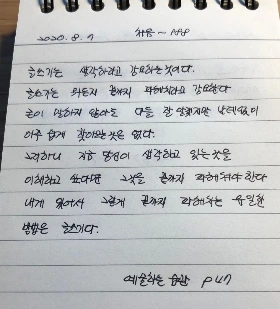 2020.8.9 처음~
글쓰기는 생각하라고 강요하는것이다.
글쓰기는 뭐든지 끝까지 파헤치라고 강요한다
굳이 말하지 않아도 다들 잘 알겠지만 난데없이
아주 쉽게 찾아오는것은 없다.
그러하니 지금 당신이 생각하고 있는것을
이해하고 싶다면 그것을 끝까지 파헤쳐야 한다
내게 있어서 그렇게 끝까지 파헤치는 유일한
방법은 글쓰기다.
예술하는 습관 p47